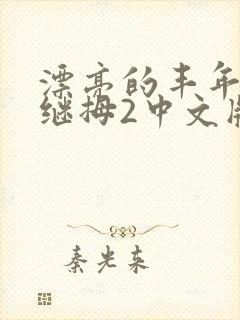 漂亮的丰年
继拇2中文版
秦光东